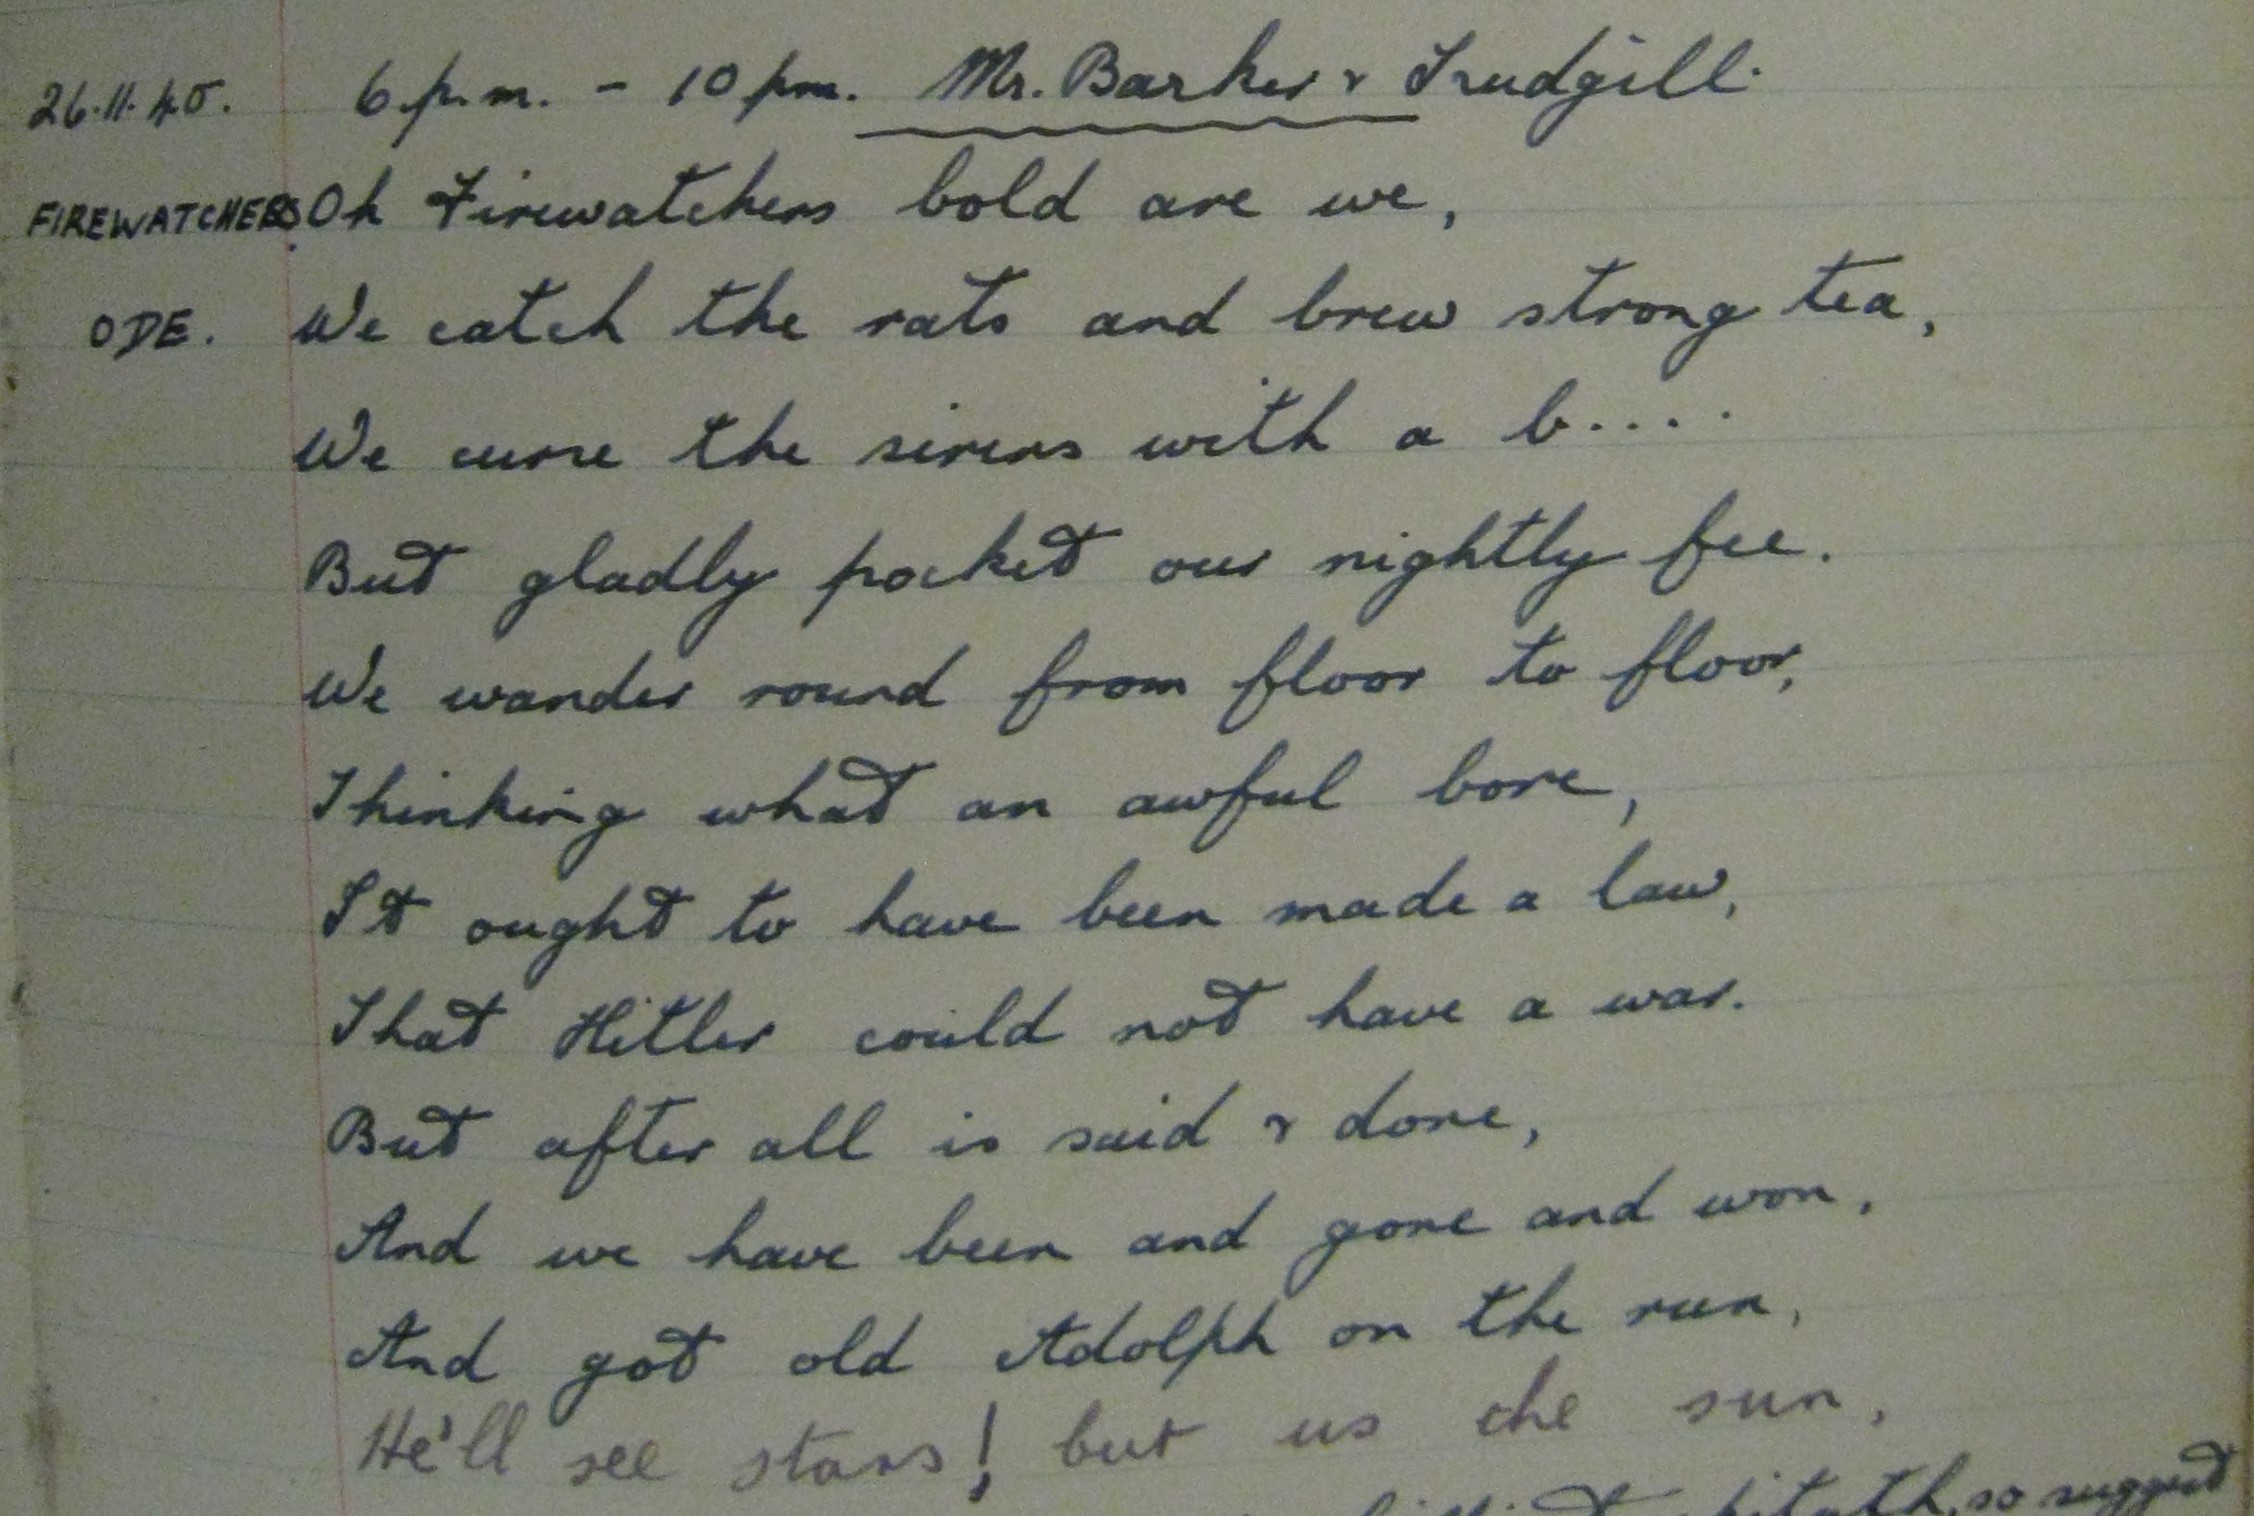 26.11.40. 6 p.m. - 10 pm. Mr. Barker & Trudgill.
FIREWATCHERS Oh Firewatchers bold are we,
ODE. We catch the rats and brew strong tea,
We curse the sirens with a b....
But gladly pocket our nightly fee.
We wander round from floor to floor,
Thinking what an awful bore,
It ought to have been made a law,
That Hitler could not have a war.
But after all is said & done,
And we have been and gone and won,
And got old Adolph on the run,
He'll see stars! but us the sun,
so suggest